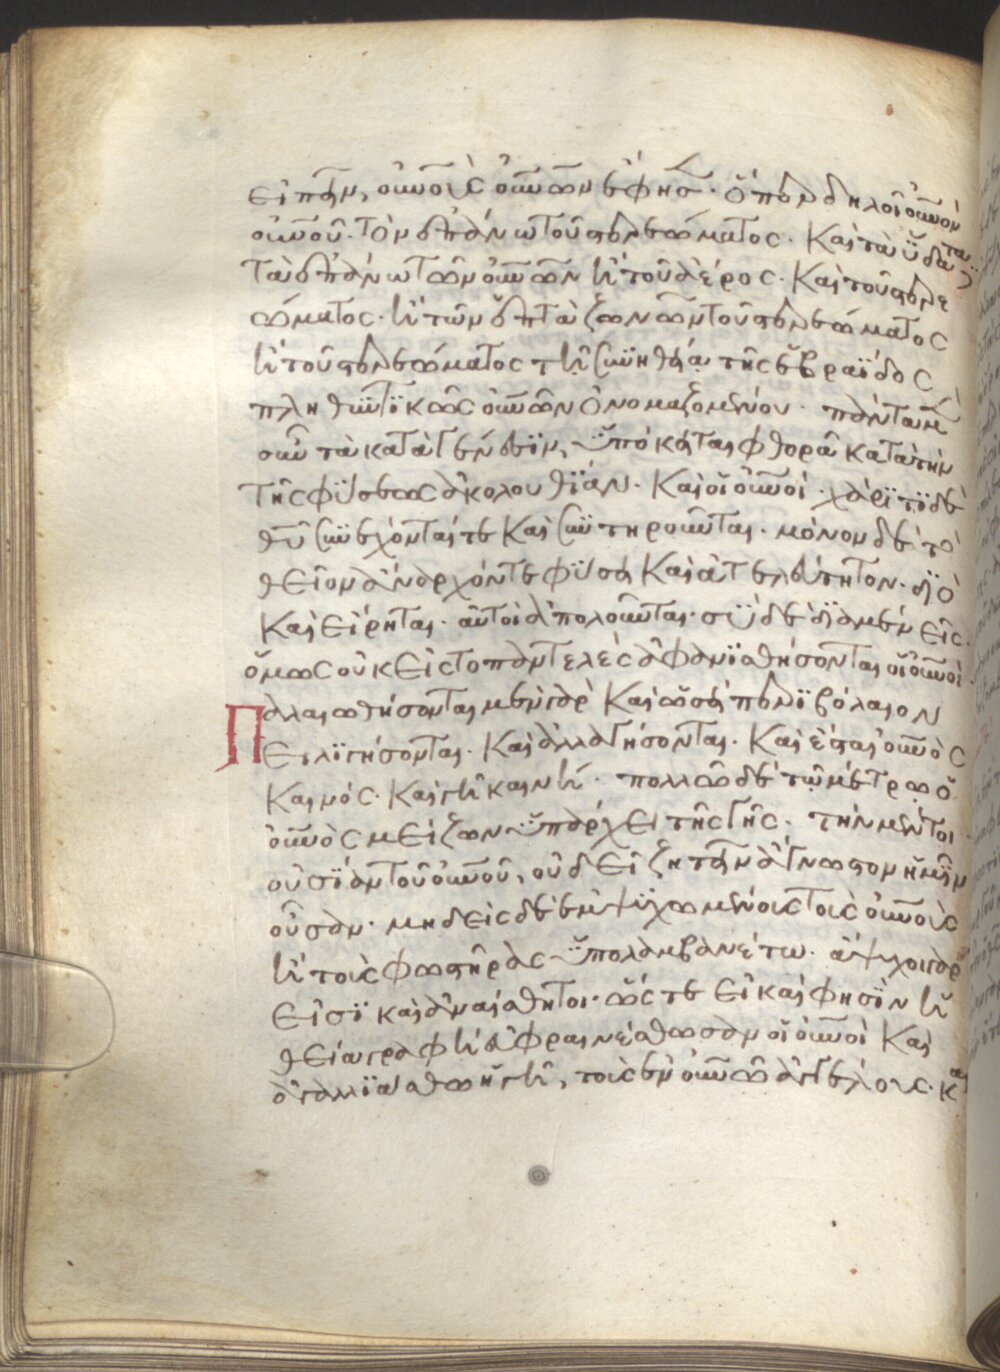 εἰπεῖν, οὐνοὺς οὐνῶν ἔφησεν. ὅπερ δηλοῖ οὐνὸν
οὐνοῦ. τὸν ἐπάνω τοῦ στερεώματος. Καὶ τὰ ὕδατα
τὰ ἐπάνω τῶν οὐνῶν ἢ τοῦ ἀέρος. Καὶ τοῦ στερε
ώματος. ἢ τῶν ἑπτὰ ζωνῶν τοῦ στερεώματος
ἢ τοῦ στερεώματος τῆ συνηθεία τῆς ἑβραΐδος
πληθυντικῶς οὐνῶν ὀνομαζομένου. πάντα μὲν
οὖν τὰ κατὰ γένεσιν, ὑπόκειται φθορᾶ κατὰ τὴν
τῆς φύσεως ἀκολουθίαν. Καὶ οἱ οὐνοί. χάριτι δὲ
θυ συνέχονταί τε καὶ συντηροῦνται. μόνον δὲ τὸ
θεῖον ἄναρχόν τε φύσει καὶ ἀτελεύτητον. διὸ
Καὶ εἴρηται. αὐτοὶ ἀπολοῦνται. σὺ δὲ διαμένεις.
ὅμως οὐκ εἰς τὸ παντελὲς ἀφανισθήσονται οἱ οὐνοί
Παλαιωθήσονται μὲν γὰρ καὶ ὡσεὶ περιβόλαιον
εἱλιγήσονται. Καὶ ἀλλαγήσονται. Καὶ ἔσται οὐνὸς
καινός. Καὶ γῆ καινή. πολλῶ δὲ τῶ μέτρω ὁ
οὐνὸς μείζων ὑπάρχει τῆς γῆς. τὴν μέντοι
οὐσίαν τοῦ οὐνοῦ, οὐ δεῖ ζητεῖν ἄγνωστον ἡμῖν
οὖσαν. μηδεὶς δὲ ἐμψυχωμένους τοὺς οὐνοὺς
ἢ τοὺς φωστῆρας ὑπολαμβανέτω. ἄψυχοι γάρ
εἰσι καὶ ἀναίσθητοι. ὥστε εἰ καί φησιν ἡ
θεία γραφὴ εὐφραινέσθωσαν οἱ οὐνοὶ καὶ
ἀγαλλιάσθω ἡ γῆ, τοὺς ἐν οὐνῶ ἀγγέλους. κα